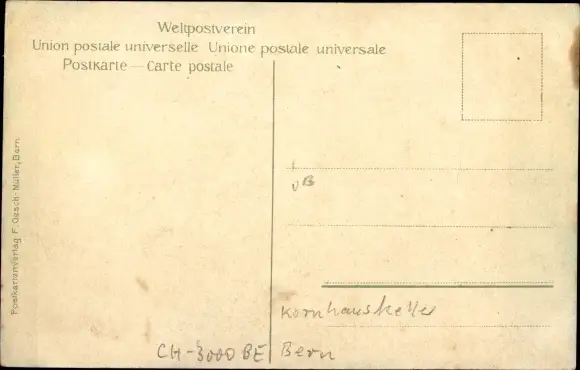 Weltpostverein
Union postale universelle Unione postale universale
Postkarte — Carte postale
Postkartenverlag F. Gasch-Müller, Bern
VB
Kornhauskeller
CH-3000 BE Bern